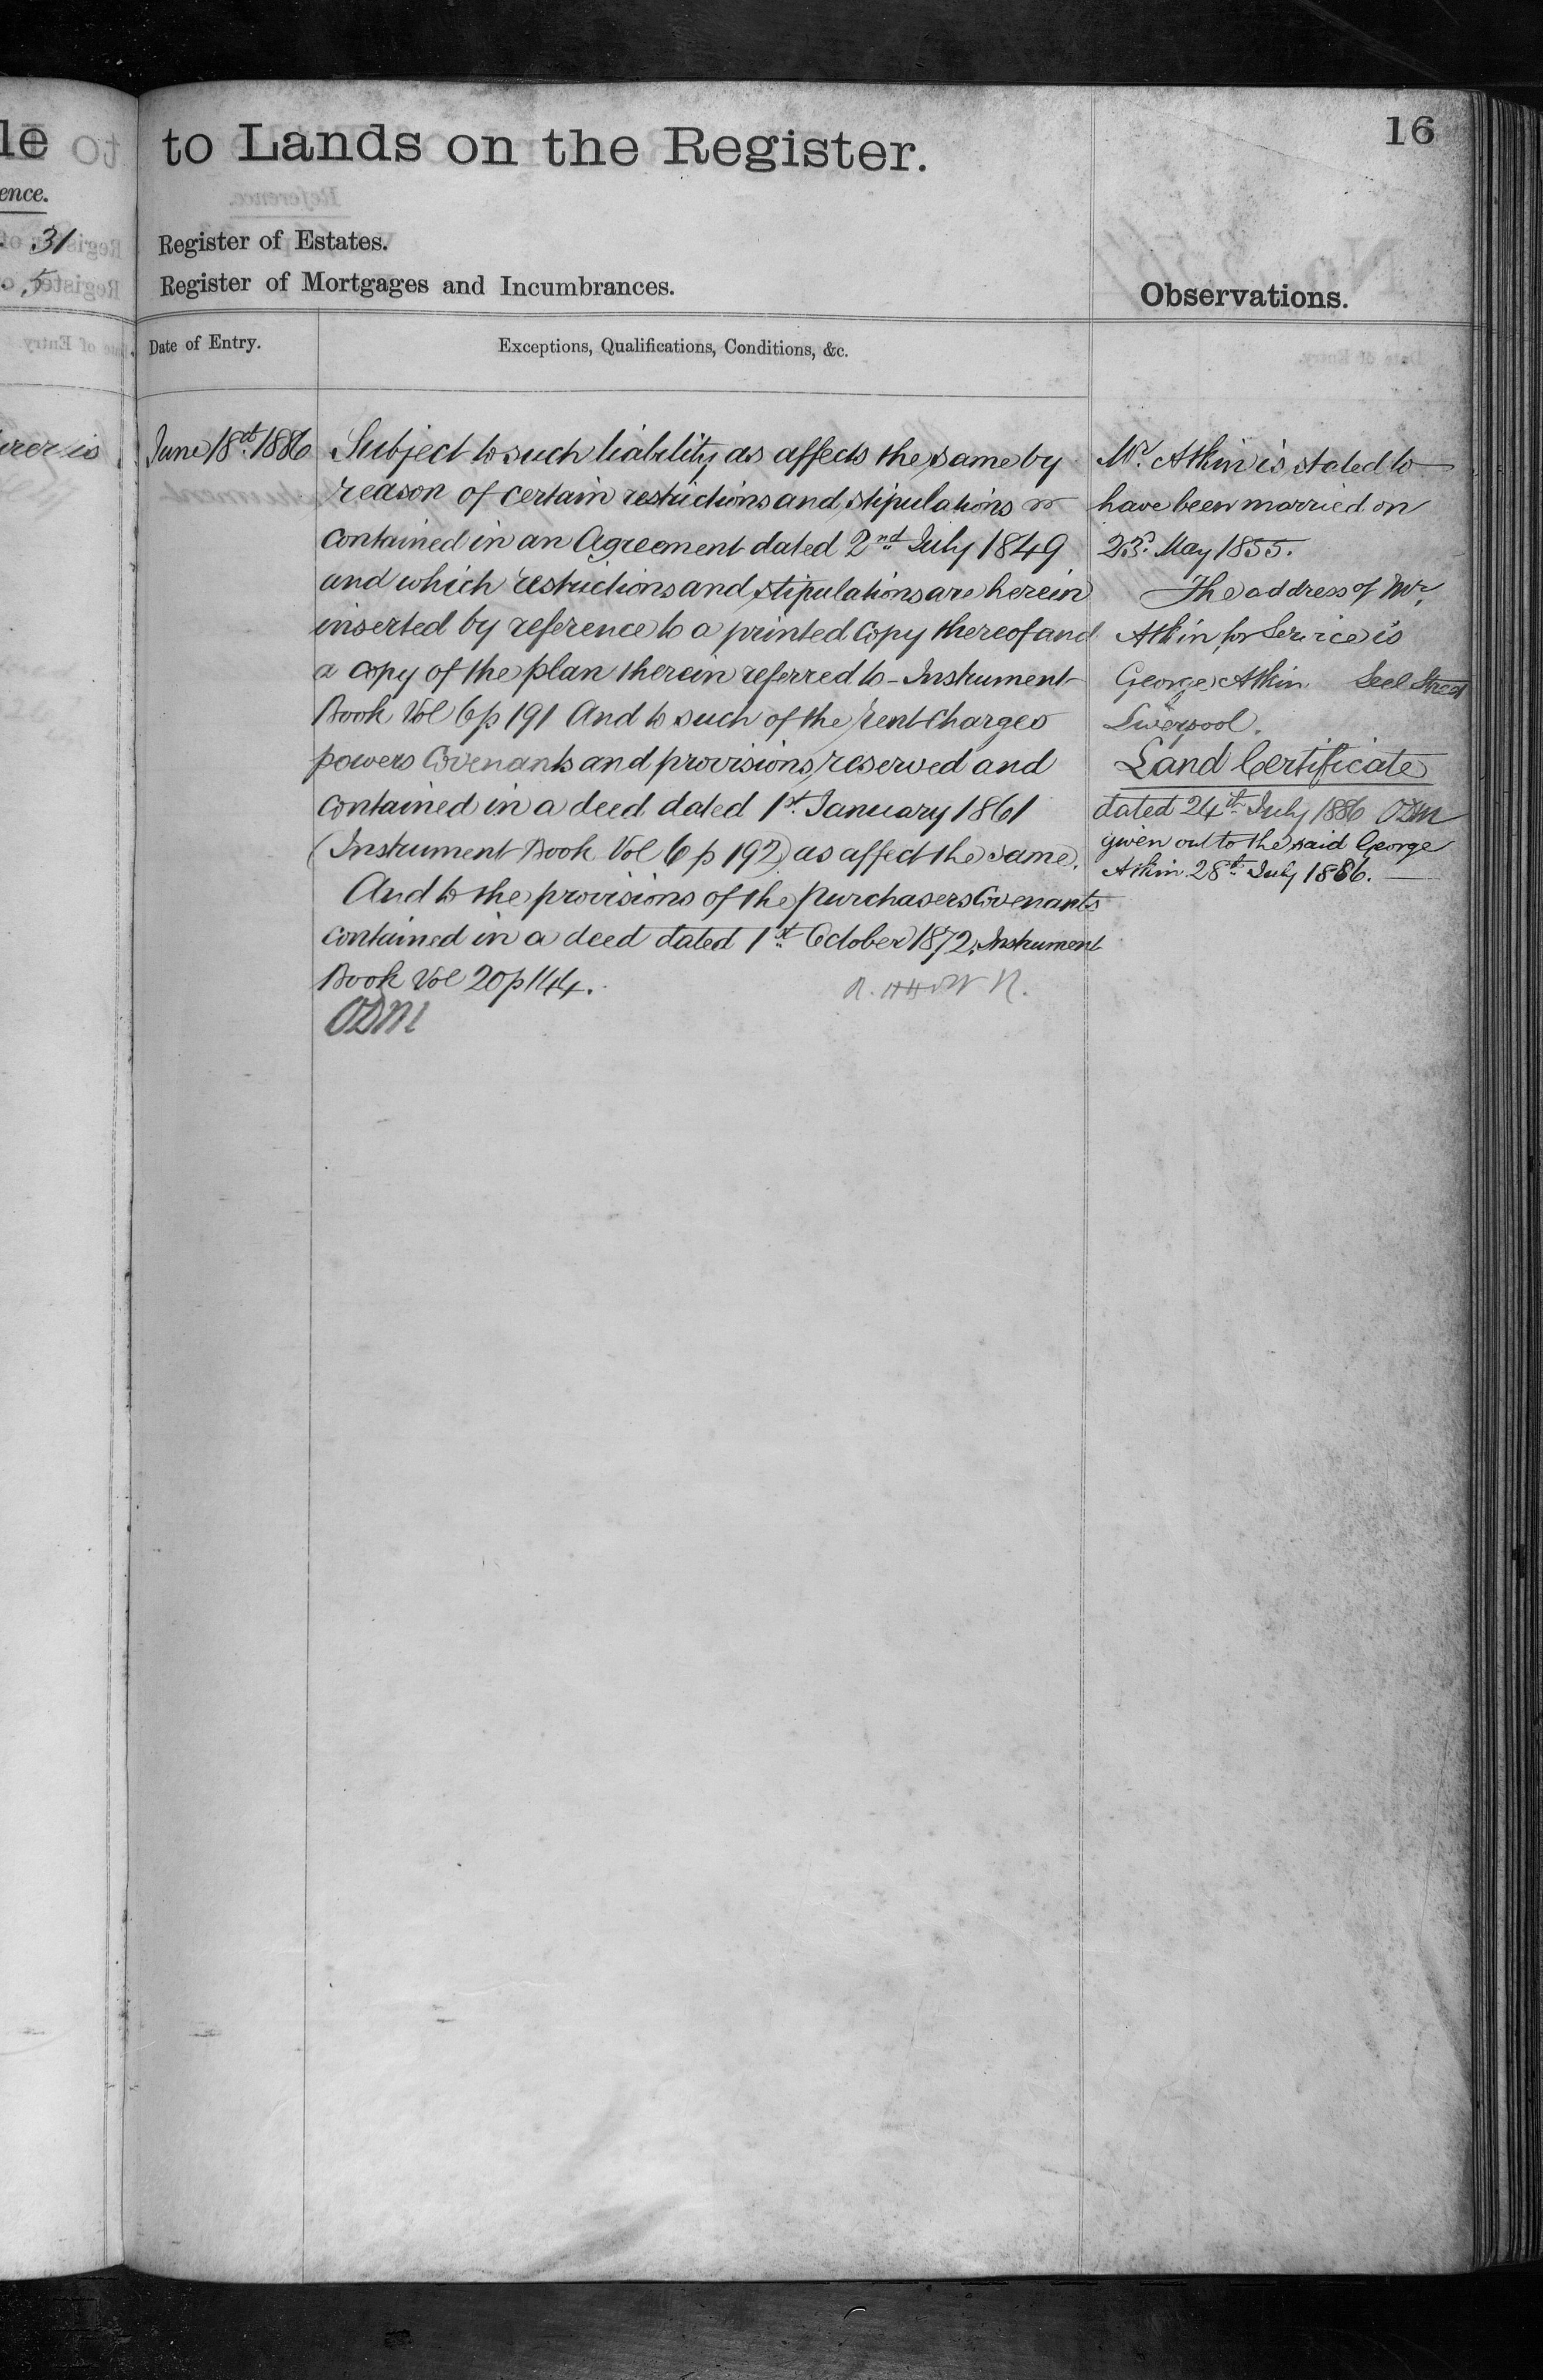 16
to Lands on the Register.
Register of Estates.
Register of Mortgages and Incumbrances.
Observations.
Date of Entry.
Exceptions, Qualifications, Conditions, &c.
ence.
31
5
June 18th. 1886
Subject to such liability as affects the same by
reason of certain restrictions and stipulations
contained in an Agreement dated 2nd July 1849
and which restrictions and stipulations are herein
inserted by reference to a printed Copy thereof and
a copy of the plan therein referred to - Instrument
Book Vol 6 p 191 And to such of the rent charges
powers Covenants and provisions reserved and
contained in a deed dated 1st. January 1861
(Instrument Book Vol 6 p 192) as affect the same.
And to the provisions of the purchasers Covenants
contained in a deed dated 1st October 1872. Instrument
Book Vol 20 p 144.
ODM
Mr. Atkin is stated to
have been married on
May 1855.
The address of Mr.
Atkin for Service is
George Atkin Seel Street
Liverpool.
Land Certificate
dated 24th July 1886 ODM
given out to the said George
Atkin 28th July 1886.